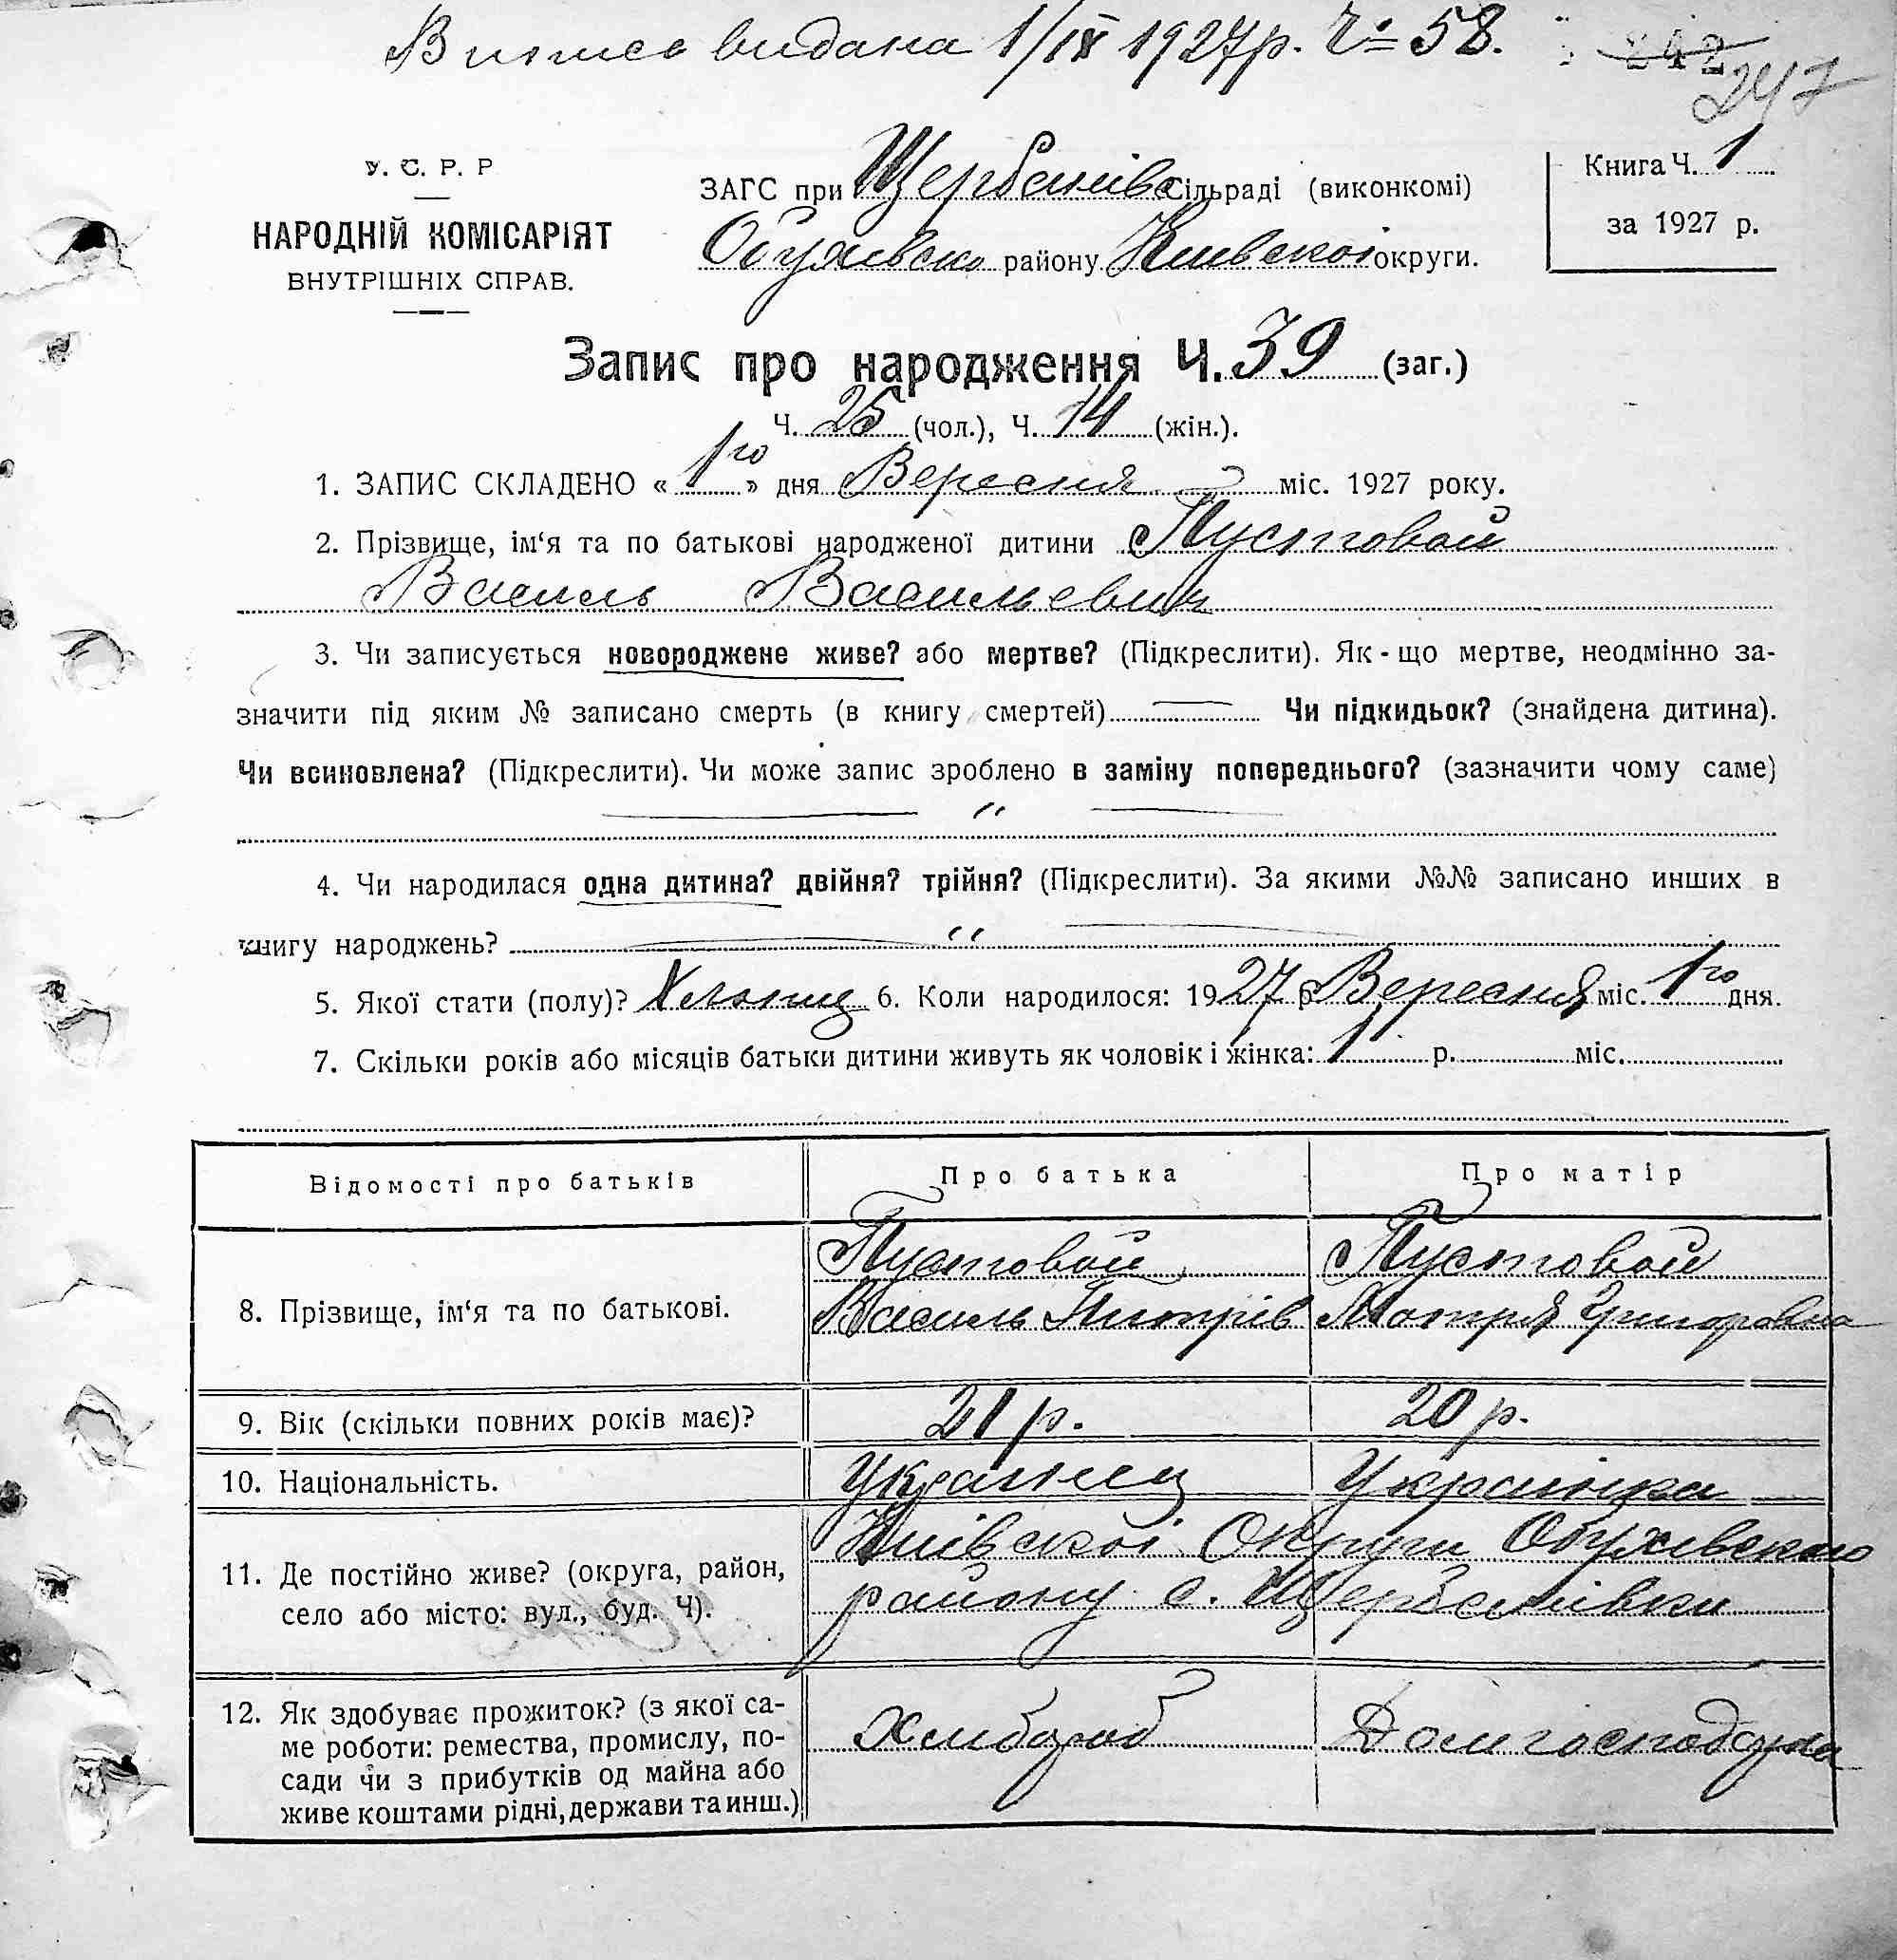 Випись видана 1/IX 1927р. Ч 58.
242
247
У. С. Р. Р
НАРОДНІЙ КОМІСАРІЯТ
ВНУТРІШНІХ СПРАВ.
ЗАГС при Щербанівс Сільраді (виконкомі)
Обухівсько району Київскоі округи.
Книга Ч. 1
за 1927 р.
Запис про народження Ч. 39 (заг.)
Ч. 25 (чол.), Ч. 14 (жін.).
1. ЗАПИС СКЛАДЕНО « 1го » дня Вересня міс. 1927 року.
2. Прізвище, ім‘я та по батькові народженої дитини Пустовой
Василь Васильевич
3. Чи записується новороджене живе? або мертве? (Підкреслити). Як - що мертве, неодмінно за-
значити під яким № записано смерть (в книгу смертей) Чи підкидьок? (знайдена дитина).
Чи всиновлена? (Підкреслити). Чи може запис зроблено в заміну попереднього? (зазначити чому саме)
4. Чи народилася одна дитина? двійня? трійня? (Підкреслити). За якими №№ записано инших в
книгу народжень?
5. Якої стати (полу)? Хлопиц 6. Коли народилося: 1927 р Вересня міс. 1го дня.
7. Скільки років або місяців батьки дитини живуть як чоловік і жінка: 1 р. міс.
Відомості про батьків Про батька Про матір
8. Прізвище, ім‘я та по батькові. Пустовой Пустовой
Василь Питрів Мотря Григоровна
9. Вік (скільки повних років має)? 21 р. 20 р.
10. Національність. Украінец Украінка
11. Де постійно живе? (округа, район,
село або місто: вул., буд. Ч).
Киівскоі Округи Обухівсково
району с. Щербанівки
12. Як здобуває прожиток? (з якої са-
ме роботи: ремества, промислу, по-
сади чи з прибутків од майна або
живе коштами рідні, держави та инш.)
Хлибороб Домгосподарка